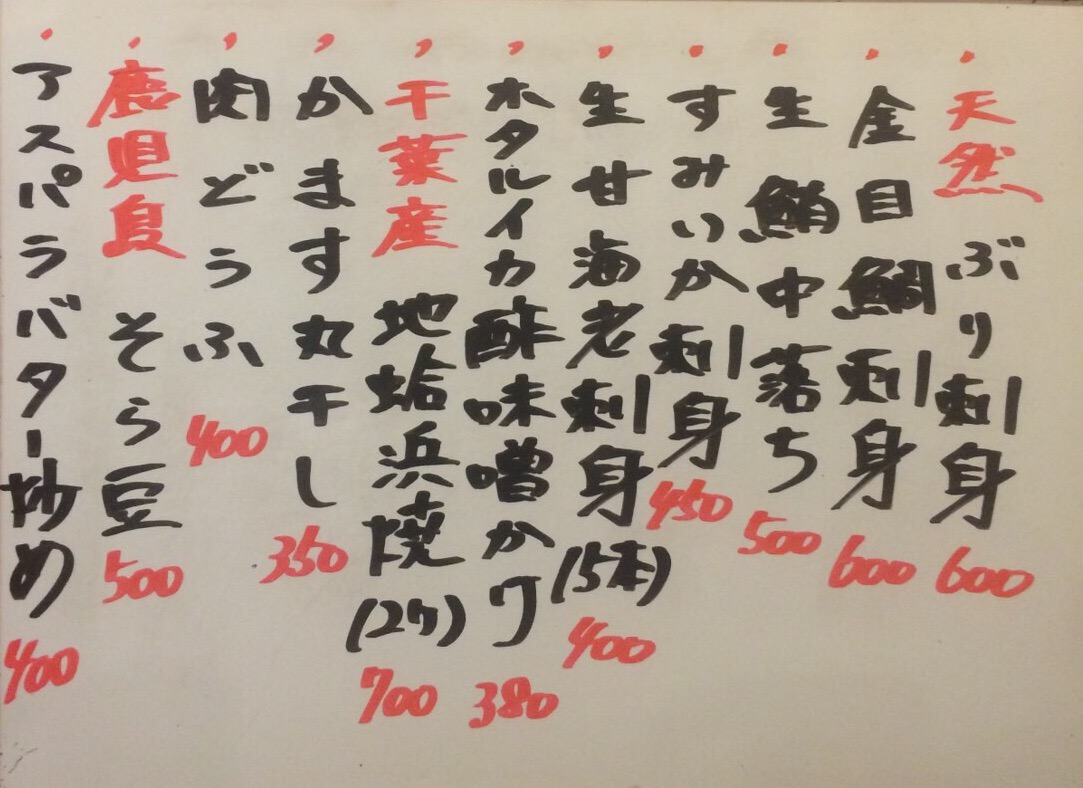 ・天然 ぶり刺身 600
・金目鯛刺身 600
・生鮪中落ち 500
・すみいか刺身 450
・生甘海老刺身(5本) 400
・ホタルイカ酢味噌かけ 380
・千葉産 地蛤浜焼(2ケ) 700
・かます丸干し 350
・肉どうふ 400
・鹿児島 そら豆 500
・アスパラバター炒め 400